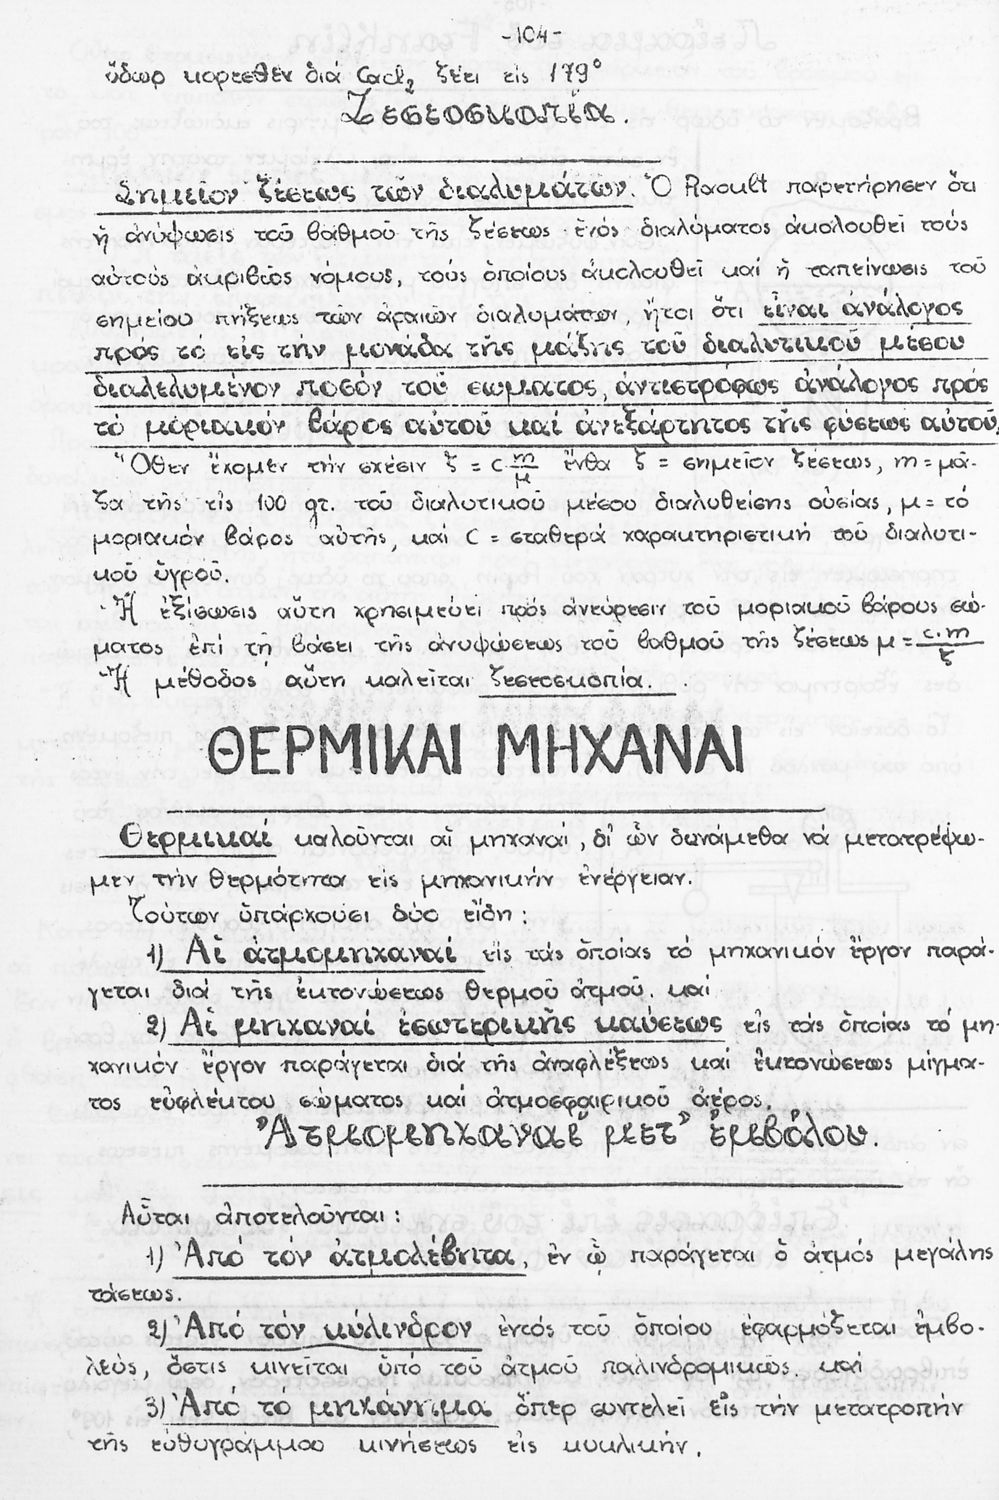 -104-
ὕδωρ κορεσθέν διά CaCl₂ ζέει εἰς 179°
Ζεσεοσκοπία.
Σημεῖον ζέσεως τῶν διαλυμάτων. Ὁ Raoult παρετήρησεν ὅτι
ἡ ἀνύψωσις τοῦ βαθμοῦ τῆς ζέσεως ἑνός διαλύματος ἀκολουθεῖ τούς
αὐτούς ἀκριβῶς νόμους, τούς ὁποίους ἀκολουθεῖ καί ἡ ταπείνωσις τοῦ
σημείου πήξεως τῶν ἀραιῶν διαλυμάτων, ἤτοι ὅτι εἶναι ἀνάλογος
πρός τό εἰς τήν μονάδα τῆς μάζης τοῦ διαλυτικοῦ μέσου
διαλελυμένον ποσόν τοῦ σώματος, ἀντιστρόφως ἀνάλογος πρός
τό μοριακόν βάρος αὐτοῦ καί ἀνεξάρτητος τῆς φύσεως αὐτοῦ.
Ὅθεν ἔχομεν τήν σχέσιν ξ = c m/μ ἔνθα ξ = σημεῖον ζέσεως, m = μᾶ-
ζα τῆς εἰς 100 gr. τοῦ διαλυτικοῦ μέσου διαλυθείσης οὐσίας, μ = τό
μοριακόν βάρος αὐτῆς, καί C = σταθερά χαρακτηριστική τοῦ διαλυτι-
κοῦ ὑγροῦ.
Ἡ ἐξίσωσις αὕτη χρησιμεύει πρός ἀνεύρεσιν τοῦ μοριακοῦ βάρους σώ-
ματος ἐπί τῇ βάσει τῆς ἀνυψώσεως τοῦ βαθμοῦ τῆς ζέσεως μ = c·m/ξ
Ἡ μέθοδος αὕτη καλεῖται ζεσεοσκοπία.
ΘΕΡΜΙΚΑΙ ΜΗΧΑΝΑΙ
Θερμικαί καλοῦνται αἱ μηχαναί, δι' ὧν δυνάμεθα νά μετατρέψω-
μεν τήν θερμότητα εἰς μηχανικήν ἐνέργειαν.
Τούτων ὑπάρχουσι δύο εἴδη:
1) Αἱ ἀτμομηχαναί εἰς τάς ὁποίας τό μηχανικόν ἔργον παρά-
γεται διά τῆς ἐκτονώσεως θερμοῦ ἀτμοῦ. καί
2) Αἱ μηχαναί ἐσωτερικῆς καύσεως εἰς τάς ὁποίας τό μη-
χανικόν ἔργον παράγεται διά τῆς ἀναφλέξεως καί ἐκτονώσεως μίγμα-
τος εὐφλέκτου σώματος καί ἀτμοσφαιρικοῦ ἀέρος.
Ἀτμομηχαναί μετ' ἐμβόλου.
Αὗται ἀποτελοῦνται:
1) Ἀπό τόν ἀτμολέβητα, ἐν ᾧ παράγεται ὁ ἀτμός μεγάλης
τάσεως.
2) Ἀπό τόν κύλινδρον ἐντός τοῦ ὁποίου ἐφαρμόζεται ἐμβο-
λεύς, ὅστις κινεῖται ὑπό τοῦ ἀτμοῦ παλινδρομικῶς. καί
3) Ἀπό τό μηχάνημα ὅπερ συντελεῖ εἰς τήν μετατροπήν
τῆς εὐθυγράμμου κινήσεως εἰς κυκλικήν.